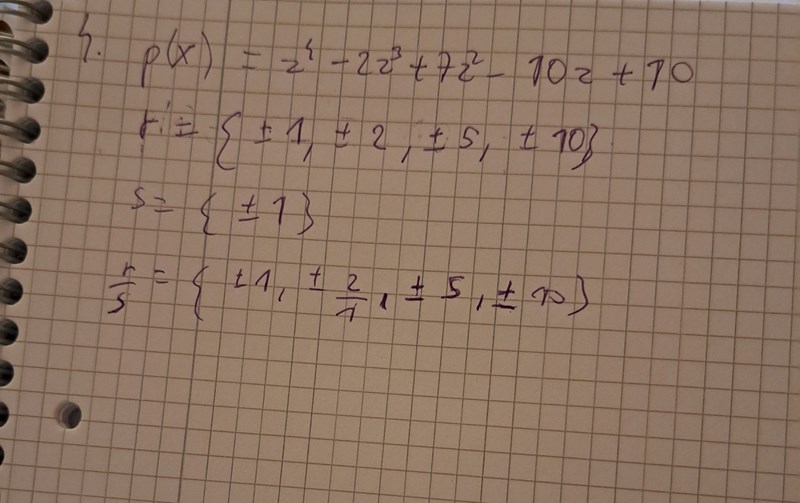 4. p(x) = z⁴ - 2z³ + 7z² - 10z + 10
r = { ± 1, ± 2, ± 5, ± 10}
s = { ± 1 }
r/s = { ± 1, ± 2/1, ± 5, ± 10 }